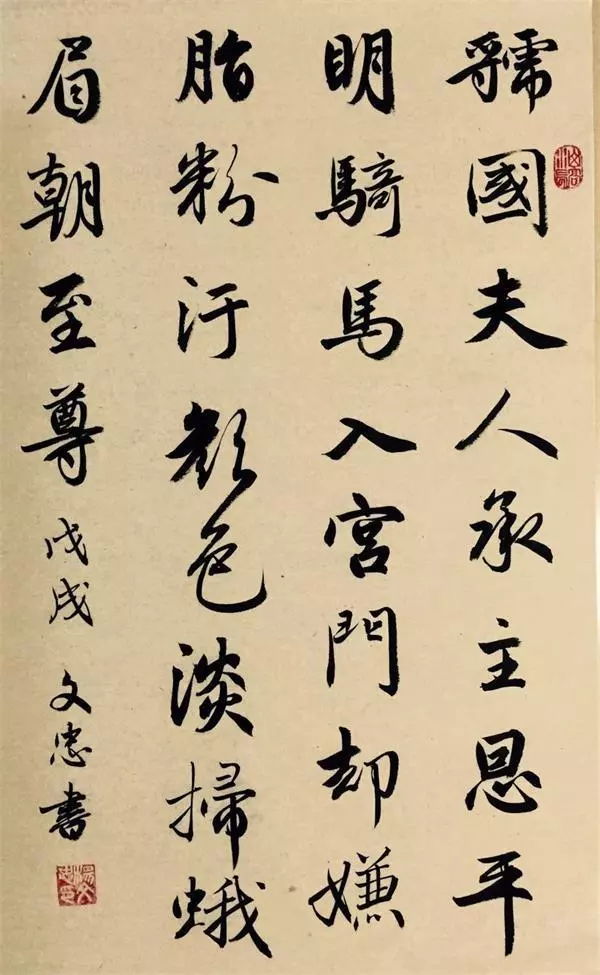 虢國夫人承主恩平
明騎馬入宮門却嫌
脂粉汙顏色淡掃蛾
眉朝至尊 戊戌 文忠書